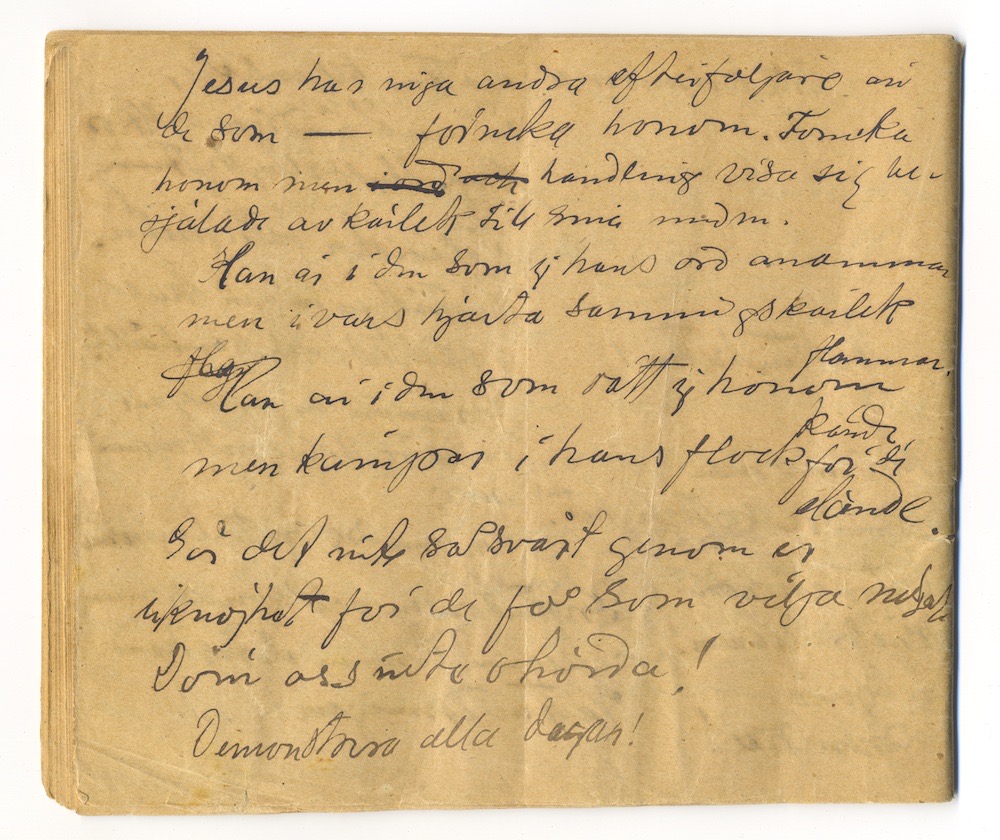 Jesus har inga andra efterföljare än
de som — förneka honom. Förneka
honom men i ord och handling visa sig be-
själade av kärlek till sina medm.
Han är i den som ej hans ord anammar
men i vars hjärta sanningskärlek
flammar.
Han är i den som rätt ej honom
kände,
men kämpar i hans flock för de
elände.
Gör det inte så svårt genom er
liknöjhet för de få som vilja något
Döm oss inte ohörda!
Demonstrera alla dagar!